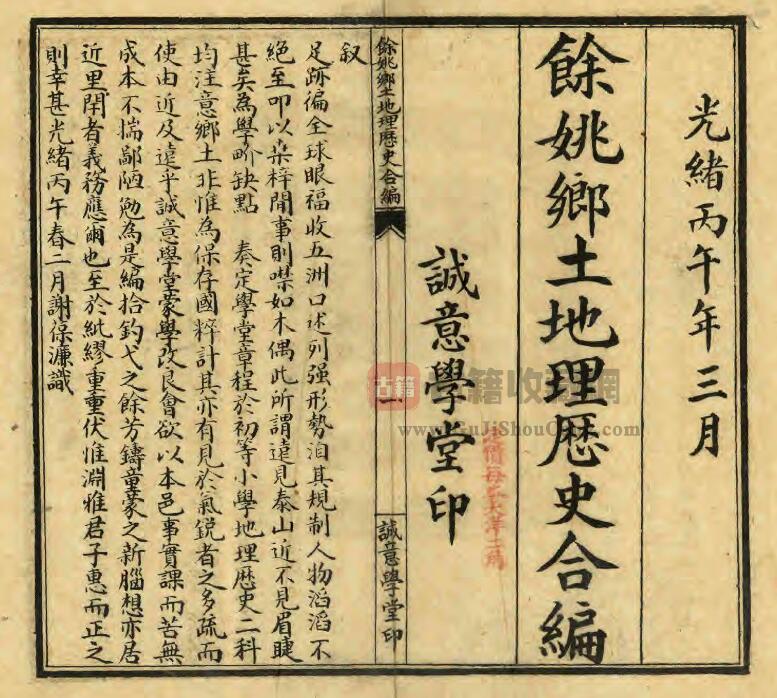 光緒丙午年三月
餘姚鄉土地理歷史合編
誠意學堂印
餘姚鄉土地理歷史合編
一
誠意學堂印
叙
足跡徧全球眼福收五洲口述列强形勢洎其規制人物滔滔不
絕至叩以桒梓閒事則噤如木偶此所謂遠見泰山近不見眉睫
甚矣為學畍缺點 奏定學堂章程於初等小學地理歷史二科
均注意鄉土非惟為保存國粹計其亦有見於氣銳者之多疏而
使由近及遠乎誠意學堂蒙學改良會欲以本邑事實課而苦無
成本不揣鄙陋勉為是編拾釣弋之餘芳鑄童蒙之新腦想亦居
近里閈者義務應爾也至於紕繆重重伏惟淵雅君子惠而正之
則幸甚光緒丙午春二月謝葆濂識
古籍
www.GuJiShouCang.com